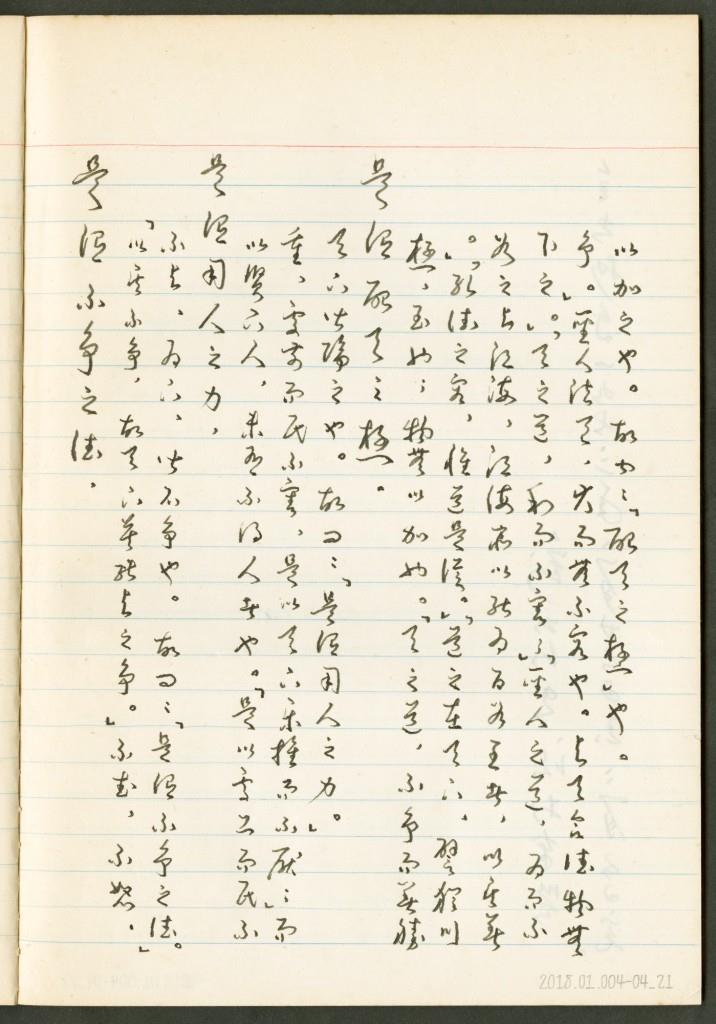 是謂不爭之德，
「以其不爭，故天下莫能與之爭。」不武，不怒，
不與、為下、皆不爭也。故曰：「是謂不爭之德。」
是謂用人之力，
以賢下人，未有不得人者也。「是以處上而民不
重，處前而民不害，是以天下樂推而不厭」；而
天下皆歸之也。故曰：「是謂用人之力。」
是謂配天之極。
極，至也；物無以加也。「天之道，不爭而善勝
。」「孔德之容，惟道是從。」「道之在天下，譬猶川
谷之與江海，江海所以能為百谷王者，以其善
下之。」「天之道，利而不害」；「聖人之道，為而不
爭。」聖人法天，大而無不容也。與天合德，物無
以加之也。故曰：「配天之極」也。
2018.01.004-04_21